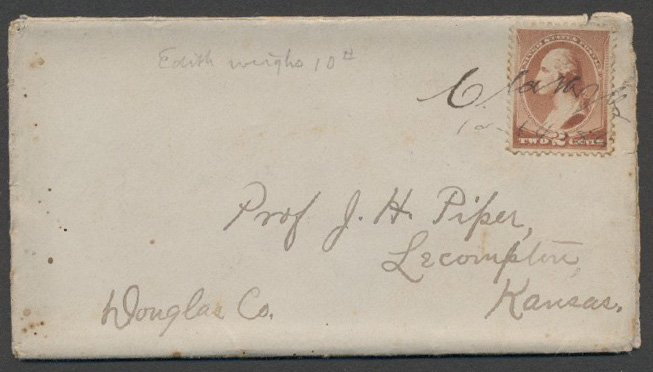 Edith weighs 10#
UNITED STATES POSTAGE
TWO 2 CENTS
Prof J. H. Piper,
Lecompton,
Kansas.
Douglas Co.